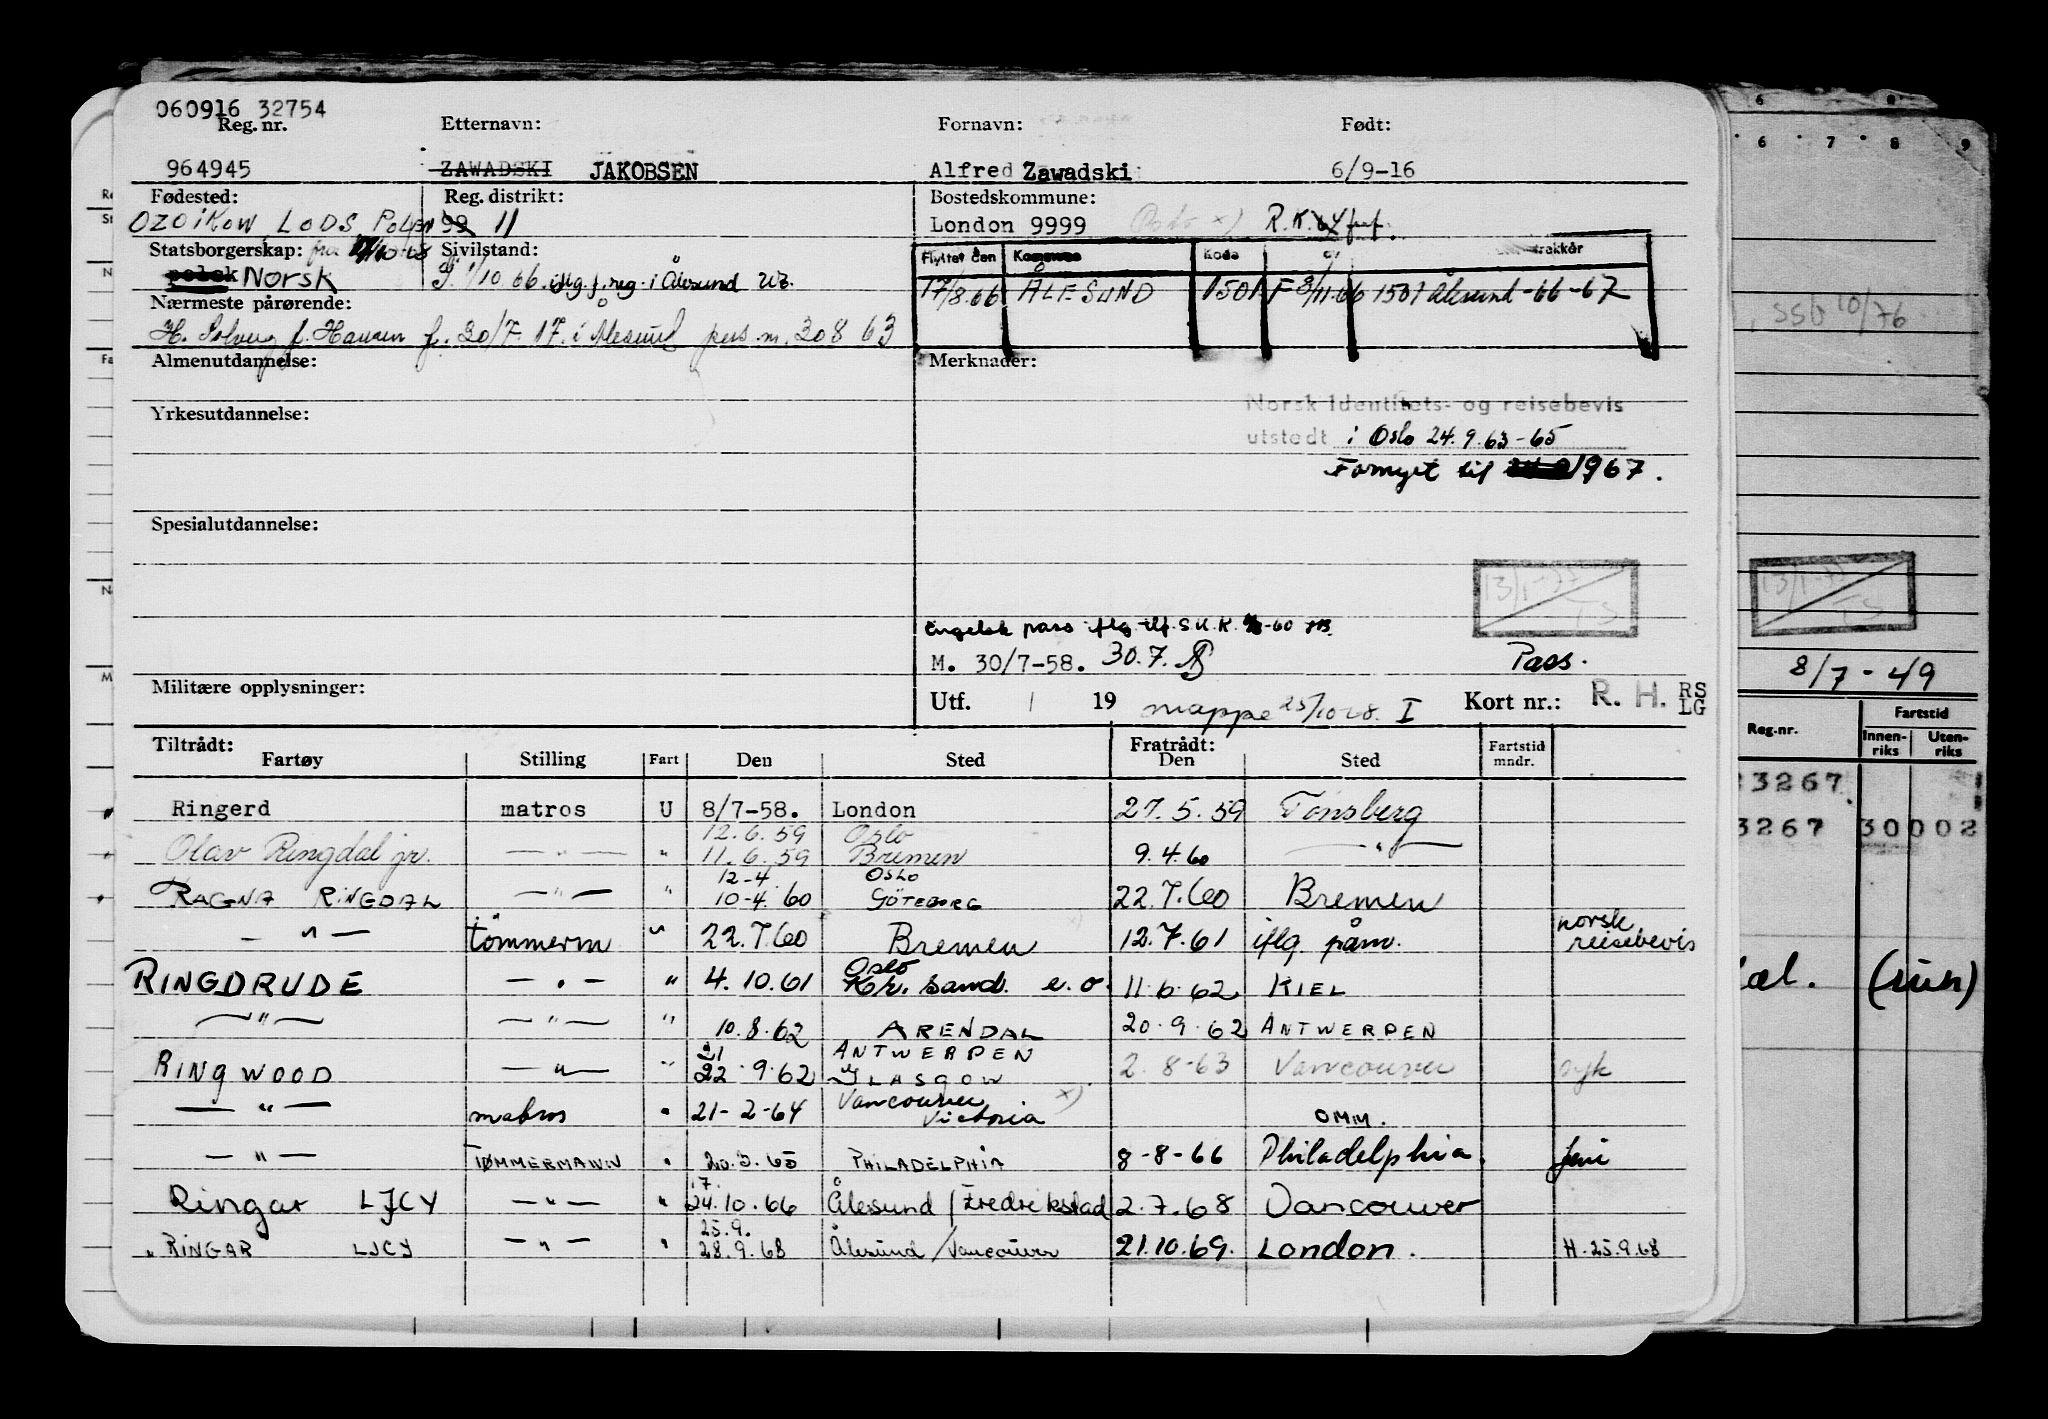 060916 32754
Reg. nr. Etternavn: Fornavn: Født:
964945 ZAWADSKI JAKOBSEN Alfred Zawadski 6/9-16
Fødested: Reg. distrikt: Bostedskommune:
OZOIKOW LODS POLEN 99 11 London 9999 R.K.
Statsborgerskap: fra Sivilstand: Flyttet den Kommune Kode
polsk Norsk G. 1/10 66. iflg. f. reg. i Ålesund 17/8.66 ÅLESUND 1501 F 3/11.66 1501 Ålesund -66-67
Nærmeste pårørende:
H. Solveig f. Hansen f. 20/7 17. i Ålesund pers. nr. 308 63
Almenutdannelse: Merknader:
Yrkesutdannelse: Norsk Identitets- og reisebevis
utstedt i Oslo 24.9.63-65
Fornyet til 1967.
Spesialutdannelse:
13/1-77
TS
Engelsk pass iflg. tlf. S.U.K. -60
M. 30/7-58. 30.7. Pass.
Militære opplysninger: Utf. 19 mappe 25/10 68. I Kort nr.: R. H. RS LG
Tiltrådt: Fratrådt:
Fartøy Stilling Fart Den Sted Den Sted Fartstid mndr.
Ringerd matros U 8/7-58. London 27.5.59 Tønsberg
12.6.59 Oslo
Olav Ringdal jr. — " — " 11.6.59 Bremen 9.4.60 — " —
12-4 OSLO
RAGNA RINGDAL — " — " 10-4.60 GÖTEBORG 22.7.60 Bremen
— " — tømmerm " 22.7.60 Bremen 12.7.61 iflg. pårør. norsk reisebevis
Oslo
RINGDRUDE — " — " 4.10.61 Kr. sand. e.o. 11.6.62 KIEL
— " — — " — " 10.8.62 ARENDAL 20.9.62 ANTWERPEN
21 ANTWERPEN
RINGWOOD — " — " 22.9.62 GLASGOW 2.8-63 Vancouver syk
Vancouver x)
— " — matros " 21-2-64 Victoria OMM.
— " — TØMMERMANN " 20.3.65 PHILADELPHIA 8-8-66 Philadelphia. ferie
17.
Ringar LJCY — " — " 24.10.66 Ålesund / Fredrikstad 2.7.68 Vancouver
25.9.
" RINGAR LJCY — " — " 28.9.68 Ålesund / Vancouver 21.10.69. London. H. 25.9.68
6 8
6 7 8 9
, SSB 10/76
13/1-77
TS
8/7-49
Reg.nr. Fartstid
Innen-riks Uten-riks
3267
3267 30002
al. (sun)